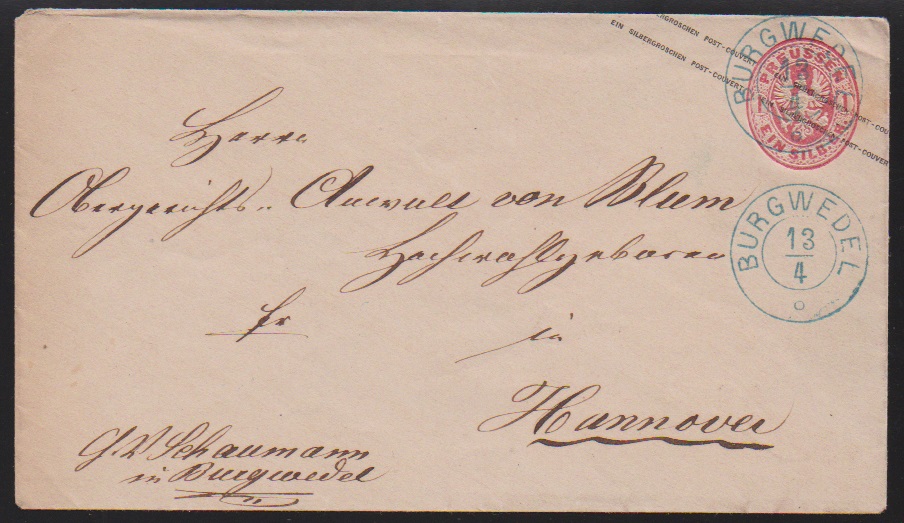 EIN SILBERGROSCHEN POST-COUVERT
EIN SILBERGROSCHEN POST-COUVERT
BURGWEDEL
13
4
PREUSSEN
1 1
EIN SILB.GR.
Herrn
Obergerichts-Anwalt von Blum
Hochwohlgeboren
BURGWEDEL
13
4
fr
in
Hannover
Schaumann
in Burgwedel